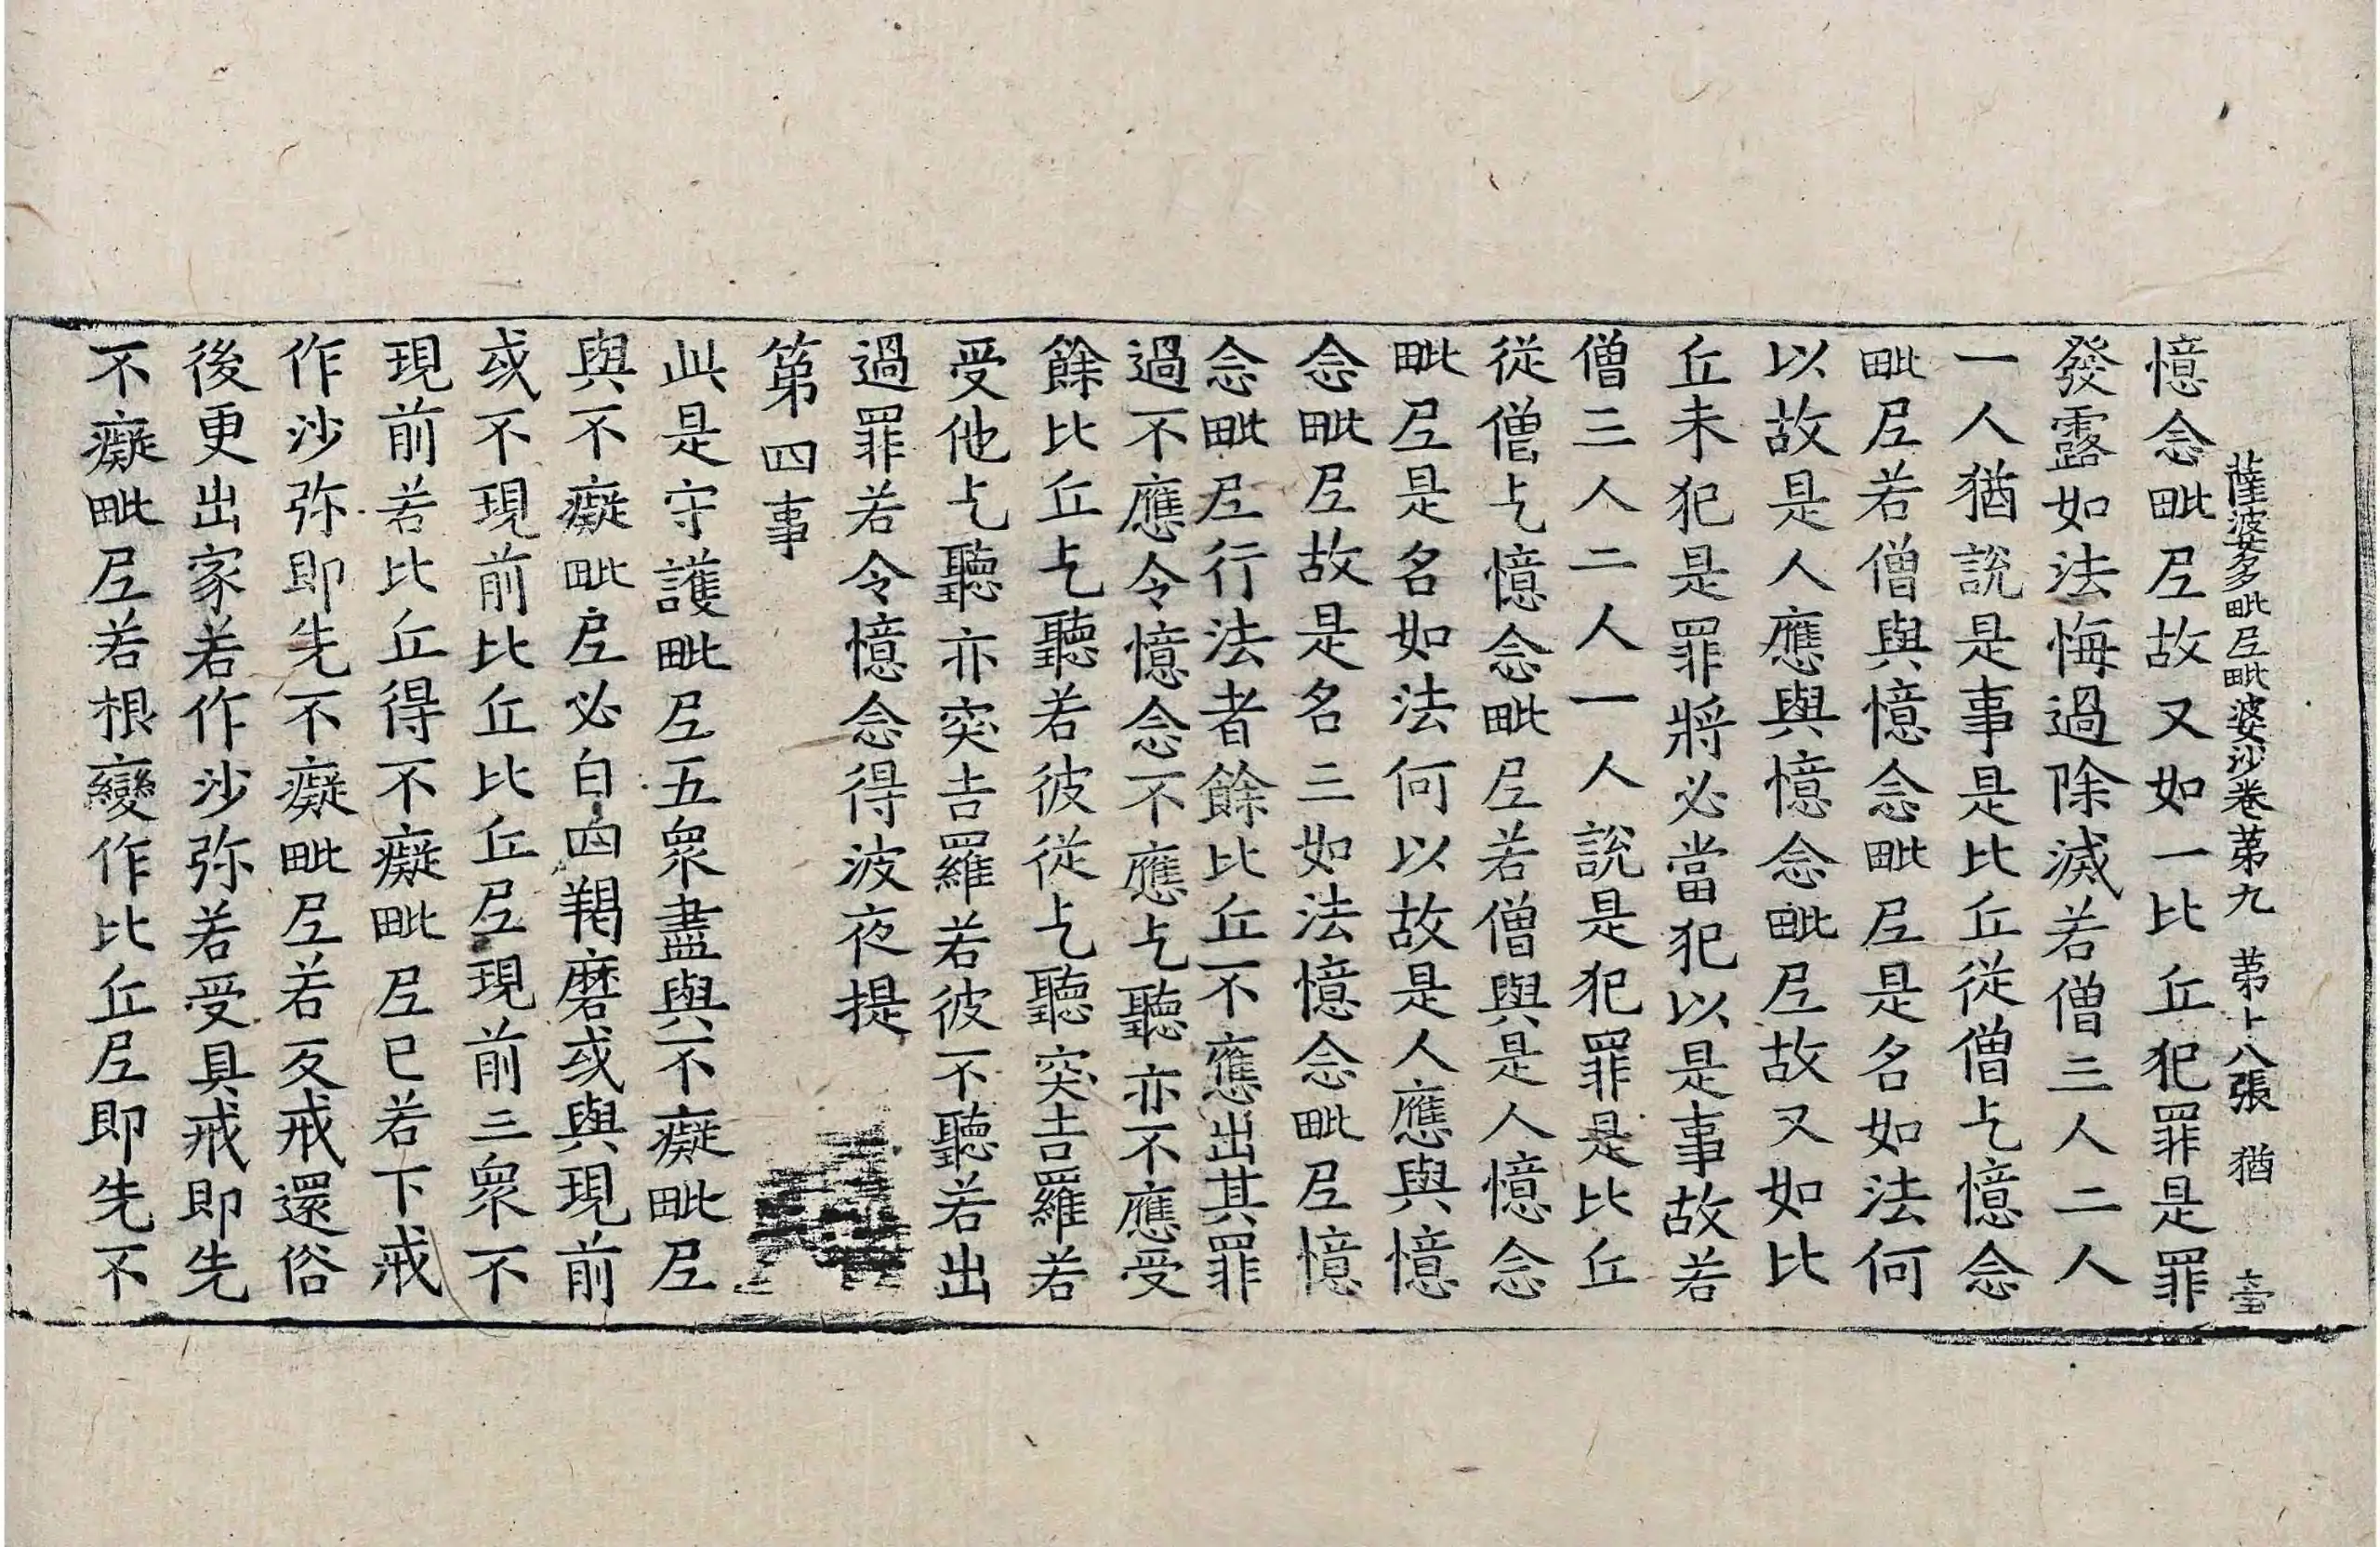 薩婆多毗尼毗婆沙卷苐九　苐十八張　猶
憶念毗尼故又如一比丘犯罪是罪
發露如法悔過除滅若僧三人二人
一人猶說是事是比丘從僧乞憶念
毗尼若僧與憶念毗尼是名如法何
以故是人應與憶念毗尼故又如比
丘未犯是罪將必當犯以是事故若
僧三人二人一人說是犯罪是比丘
從僧乞憶念毗尼若僧與是人憶念
毗尼是名如法何以故是人應與憶
念毗尼故是名三如法憶念毗尼憶
念毗尼行法者餘比丘不應出其罪
過不應令憶念不應乞聽亦不應受
餘比丘乞聽若彼從乞聽突吉羅若
受他乞聽亦突吉羅若彼不聽若出
過罪若令憶念得波夜提
第四事
此是守護毗尼五衆盡與不癡毗尼
與不癡毗尼必白四羯磨或與現前
或不現前比丘比丘尼現前三衆不
現前若比丘得不癡毗尼已若下戒
作沙弥即先不癡毗尼若反戒還俗
後更出家若作沙弥若受具戒即先
不癡毗尼若根變作比丘尼即先不